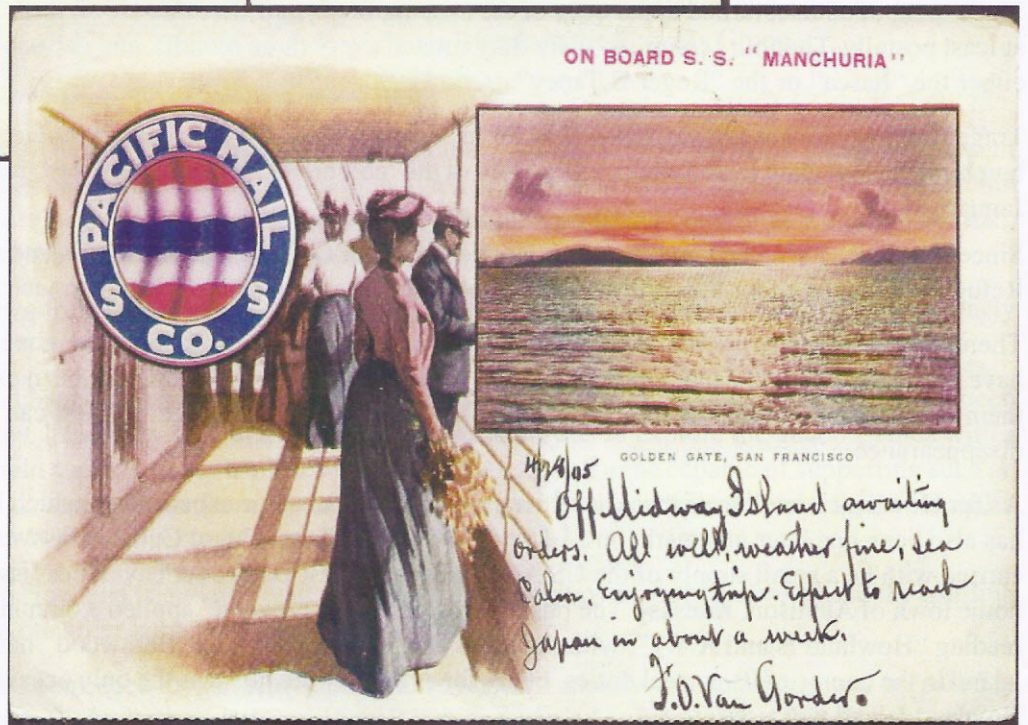 ON BOARD S. S. "MANCHURIA"
PACIFIC MAIL
S S
CO.
GOLDEN GATE, SAN FRANCISCO
4/28/05
Off Midway Island awaiting
orders. All well, weather fine, sea
Calm. Enjoying trip. Expect to reach
Japan in about a week.
Van Gorder.